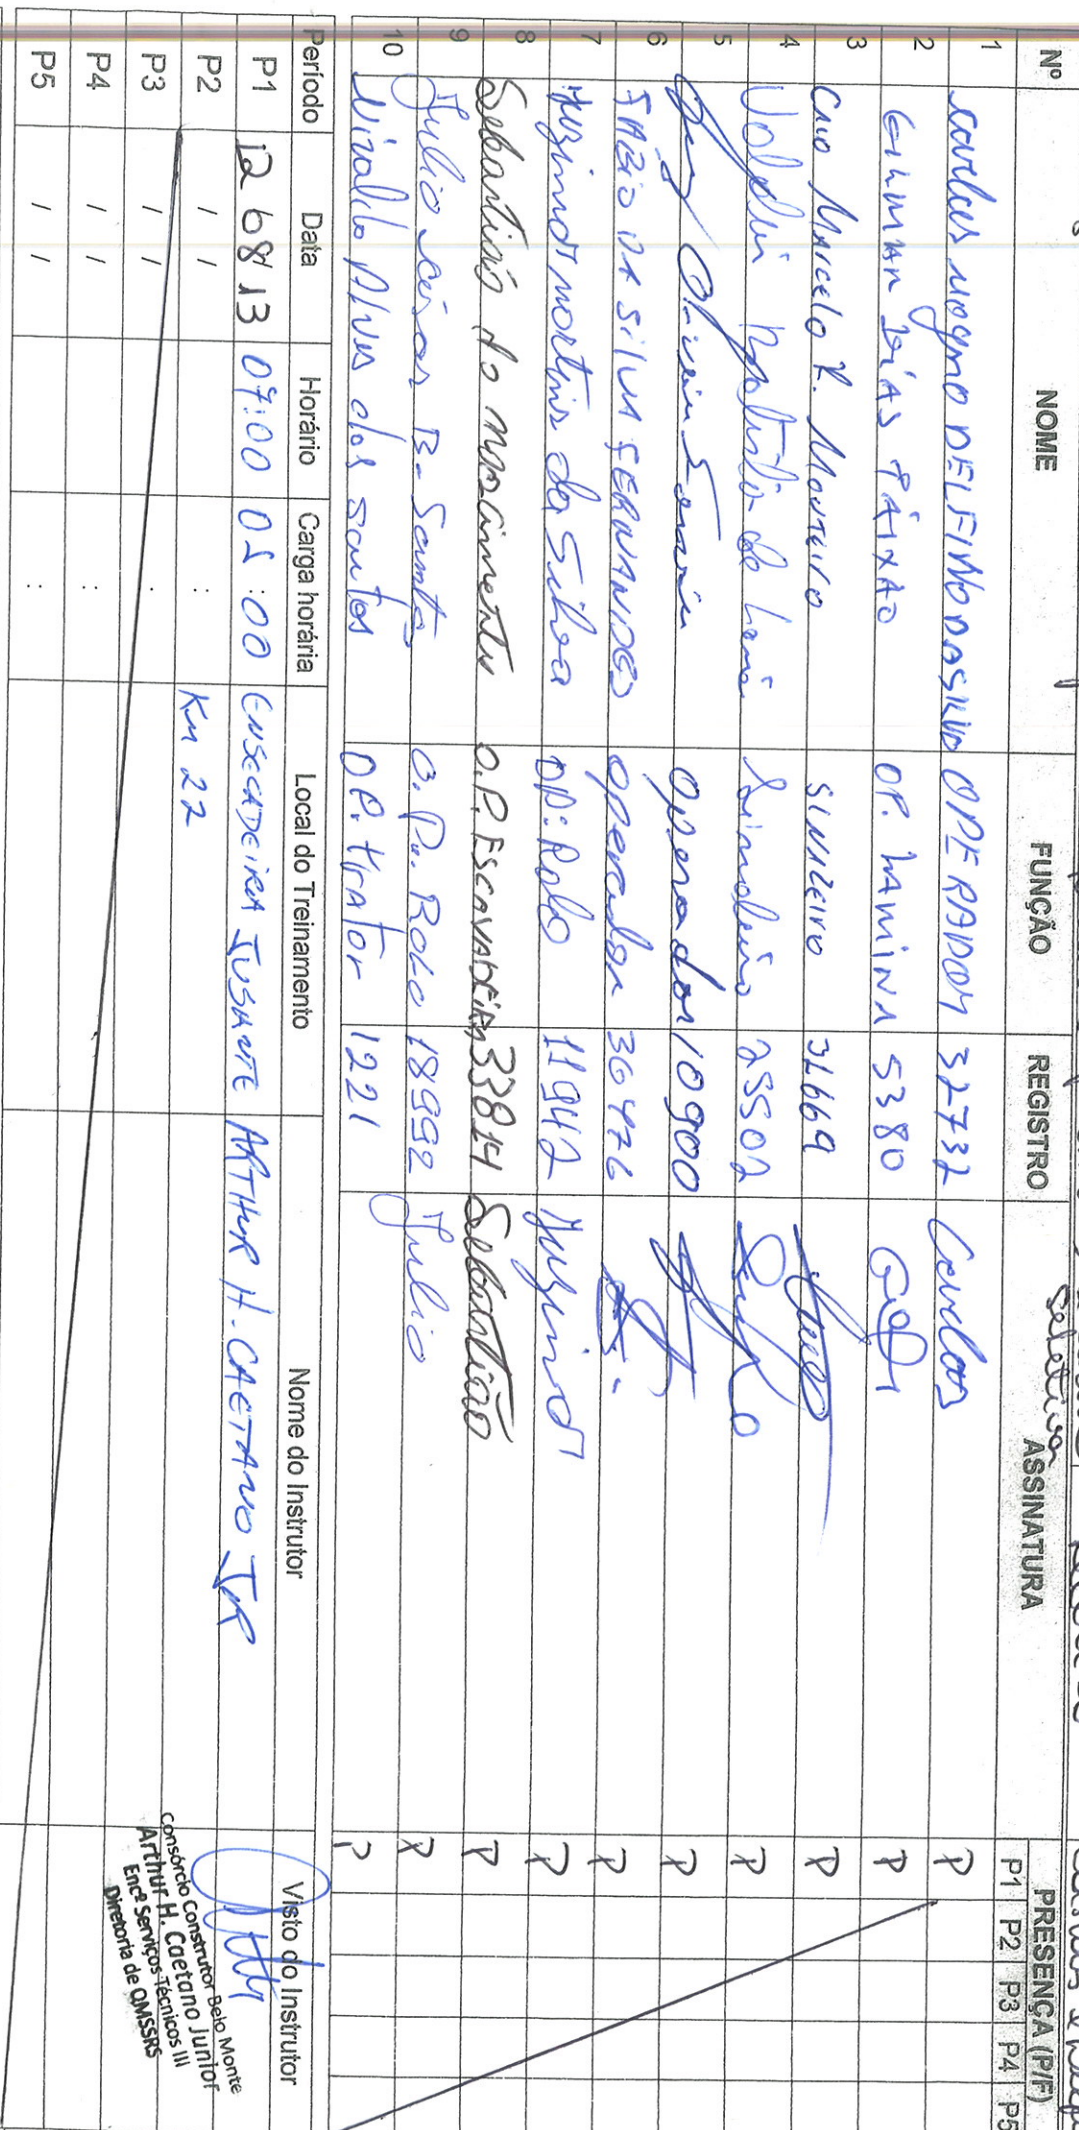 seletiva
Nº NOME FUNÇÃO REGISTRO ASSINATURA PRESENÇA (P/F)
P1 P2 P3 P4 P5
1 Carlos Magno DELFINO DA SILVA OPERADOR 32732 Carlos P
2 GILMAR DIAS PAIXAO OP. LAMINA 5380 P
3 CAIO MARCELO R. MONTEIRO SINALEIRO 31669 P
4 Batista de Sinaleiro 25502 P
5 Oliveira Operador 10900 P
6 FABIO DA SILVA FERNANDES operador 36476 P
7 Martins da Silva OP: Rolo 11942 P
8 Sebastião do Nascimento O.P. ESCAVADEIRA 33814 Sebastião P
9 Julio Cesar B. Santos O. P. ROLO 18992 Julio P
10 Alves dos santos OP. trator 1221 P
Período Data Horário Carga horária Local do Treinamento Nome do Instrutor Visto do Instrutor
P1 12 08 13 07:00 01:00 ENSECADEIRA JUSANTE ARTHUR H. CAETANO JNR
P2 / / : Km 22
P3 / / :
P4 / / :
P5 / / :
Consórcio Construtor Belo Monte
Arthur H. Caetano Junior
Encº Serviços Técnicos III
Diretoria de QMSSRS